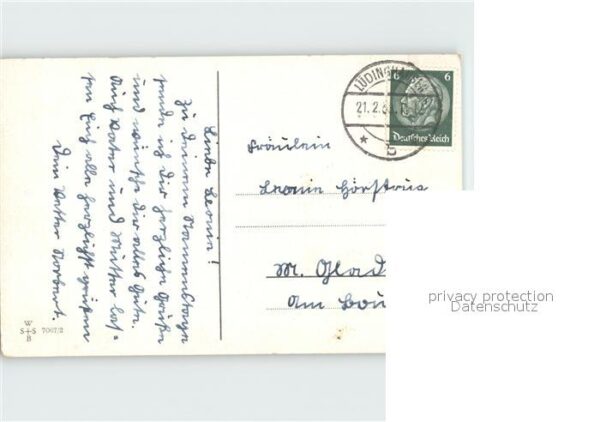 Liebe Leonie!
Zu deinem Namenstage
sende ich dir herzliche Grüße
und wünsche dir alles Gute.
Auch Vater und Mutter las-
sen Euch alle herzlichst grüßen
Dein Vetter Norbert.
W
S+S 7067/2
B
LÜDINGHAUSEN
21.2.3
* b
6 6
Deutsches Reich
Fräulein
Leonie
M. Glad
Am
privacy protection
Datenschutz